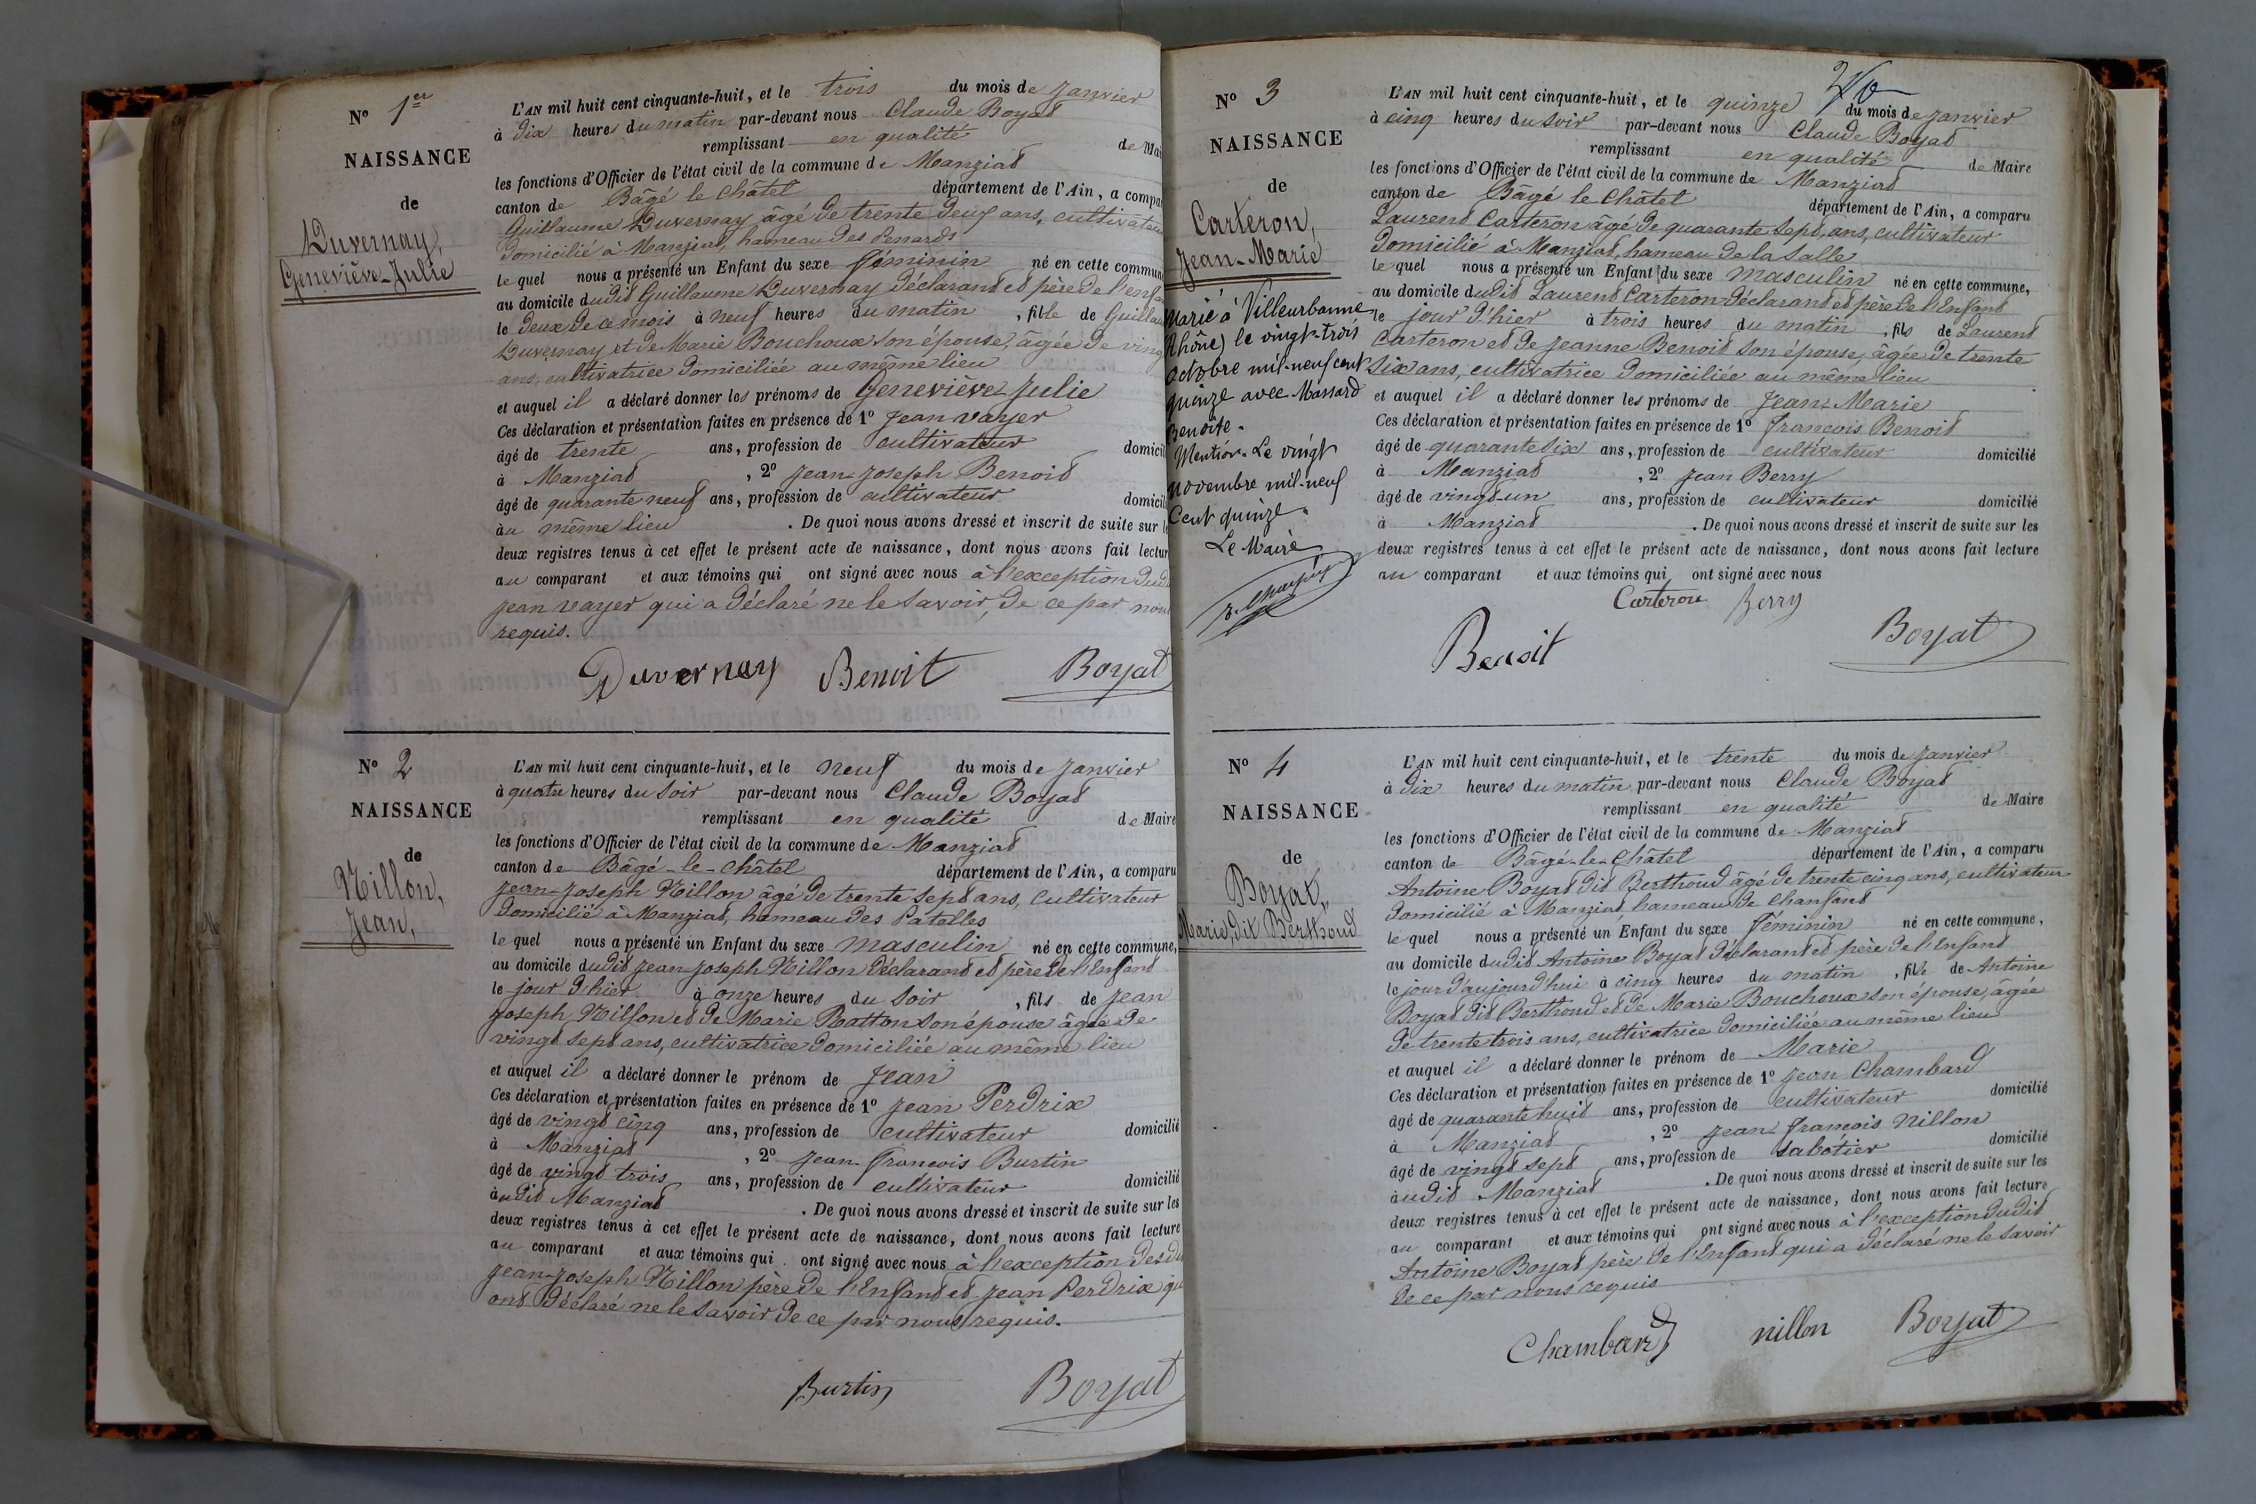 N° 1er
NAISSANCE
de
Duvernay,
Geneviève-Julie
L'AN mil huit cent cinquante-huit, et le trois du mois de janvier
à dix heures du matin par-devant nous Claude Boyat
remplissant en qualité de Mai
les fonctions d'Officier de l'état civil de la commune de Manziat
canton de Bâgé le Châtel département de l'Ain, a compa
Guillaume Duvernay âgé de trente deux ans, cultivateur
domicilié à Manziat, hameau des Penards
le quel nous a présenté un Enfant du sexe féminin né en cette commun
au domicile dudit Guillaume Duvernay déclarant et père de l'enfa
le deux de ce mois à neuf heures du matin, fille de Guillau
Duvernay et de Marie Bouchoux son épouse, âgée de vingt
ans, cultivatrice domiciliée au même lieu
et auquel il a déclaré donner les prénoms de Geneviève Julie
Ces déclaration et présentation faites en présence de 1° Jean Vayer
âgé de trente ans, profession de cultivateur domicil
à Manziat, 2° Jean-Joseph Benoit
âgé de quarante neuf ans, profession de cultivateur domicil
au même lieu. De quoi nous avons dressé et inscrit de suite sur l
deux registres tenus à cet effet le présent acte de naissance, dont nous avons fait lectur
au comparant et aux témoins qui ont signé avec nous à l'exception dud
Jean Vayer qui a déclaré ne le savoir, de ce par nous
requis.
Duvernay Benoit Boyat
N° 2
NAISSANCE
de
Nillon,
Jean,
L'AN mil huit cent cinquante-huit, et le neuf du mois de janvier
à quatre heures du soir par-devant nous Claude Boyat
remplissant en qualité de Maire
les fonctions d'Officier de l'état civil de la commune de Manziat
canton de Bâgé-le-Châtel département de l'Ain, a comparu
Jean-Joseph Nillon âgé de trente sept ans, cultivateur
domicilié à Manziat, hameau des Patelles
le quel nous a présenté un Enfant du sexe masculin né en cette commune,
au domicile dudit Jean Joseph Nillon déclarant et père de l'Enfant
le jour d'hier à onze heures du soir, fils de Jean
Joseph Nillon et de Marie Ratton son épouse âgée de
vingt sept ans, cultivatrice domiciliée au même lieu
et auquel il a déclaré donner le prénom de Jean
Ces déclaration et présentation faites en présence de 1° Jean Perdrix
âgé de vingt cinq ans, profession de cultivateur domicilié
à Manziat, 2° Jean-François Burtin
âgé de vingt trois ans, profession de cultivateur domicilié
audit Manziat. De quoi nous avons dressé et inscrit de suite sur les
deux registres tenus à cet effet le présent acte de naissance, dont nous avons fait lecture
au comparant et aux témoins qui ont signé avec nous à l'exception desd
Jean-Joseph Nillon père de l'Enfant et Jean Perdrix qui
ont déclaré ne le savoir de ce par nous requis.
Burtin Boyat
N° 3
NAISSANCE
de
Carteron,
Jean-Marie
Marié à Villeurbanne
(Rhône) le vingt-trois
octobre mil-neuf cent
quinze avec Massard
Benoîte.
Mention. Le vingt
novembre mil-neuf
cent quinze.
Le Maire
L'AN mil huit cent cinquante-huit, et le quinze du mois de janvier
à cinq heures du soir par-devant nous Claude Boyat
remplissant en qualité de Maire
les fonctions d'Officier de l'état civil de la commune de Manziat
canton de Bâgé le Châtel département de l'Ain, a comparu
Laurent Carteron âgé de quarante sept ans, cultivateur
domicilié à Manziat, hameau de la Salle
le quel nous a présenté un Enfant du sexe masculin né en cette commune,
au domicile dudit Laurent Carteron déclarant et père de l'Enfant
le jour d'hier à trois heures du matin, fils de Laurent
Carteron et de Jeanne Benoit son épouse, âgée de trente
six ans, cultivatrice domiciliée au même lieu
et auquel il a déclaré donner les prénoms de Jean-Marie
Ces déclaration et présentation faites en présence de 1° François Benoit
âgé de quarante six ans, profession de cultivateur domicilié
à Manziat, 2° Jean Berry
âgé de vingt-un ans, profession de cultivateur domicilié
à Manziat. De quoi nous avons dressé et inscrit de suite sur les
deux registres tenus à cet effet le présent acte de naissance, dont nous avons fait lecture
au comparant et aux témoins qui ont signé avec nous
Carteron Berry
Benoit Boyat
N° 4
NAISSANCE
de
Boyat,
Marie, dit Berthoud
L'AN mil huit cent cinquante-huit, et le trente du mois de janvier
à dix heures du matin par-devant nous Claude Boyat
remplissant en qualité de Maire
les fonctions d'Officier de l'état civil de la commune de Manziat
canton de Bâgé-le-Châtel département de l'Ain, a comparu
Antoine Boyat dit Berthoud âgé de trente cinq ans, cultivateur
domicilié à Manziat, hameau de Chanfant
le quel nous a présenté un Enfant du sexe féminin né en cette commune,
au domicile dudit Antoine Boyat déclarant et père de l'Enfant
le jour d'aujourd'hui à cinq heures du matin, fille de Antoine
Boyat dit Berthoud et de Marie Bouchoux son épouse, âgée
de trente trois ans, cultivatrice domiciliée au même lieu
et auquel il a déclaré donner le prénom de Marie
Ces déclaration et présentation faites en présence de 1° Jean Chambard
âgé de quarante huit ans, profession de cultivateur domicilié
à Manziat, 2° Jean-François Nillon
âgé de vingt sept ans, profession de sabotier domicilié
audit Manziat. De quoi nous avons dressé et inscrit de suite sur les
deux registres tenus à cet effet le présent acte de naissance, dont nous avons fait lecture
au comparant et aux témoins qui ont signé avec nous à l'exception dudit
Antoine Boyat père de l'Enfant qui a déclaré ne le savoir
de ce par nous requis
Chambard nillon Boyat